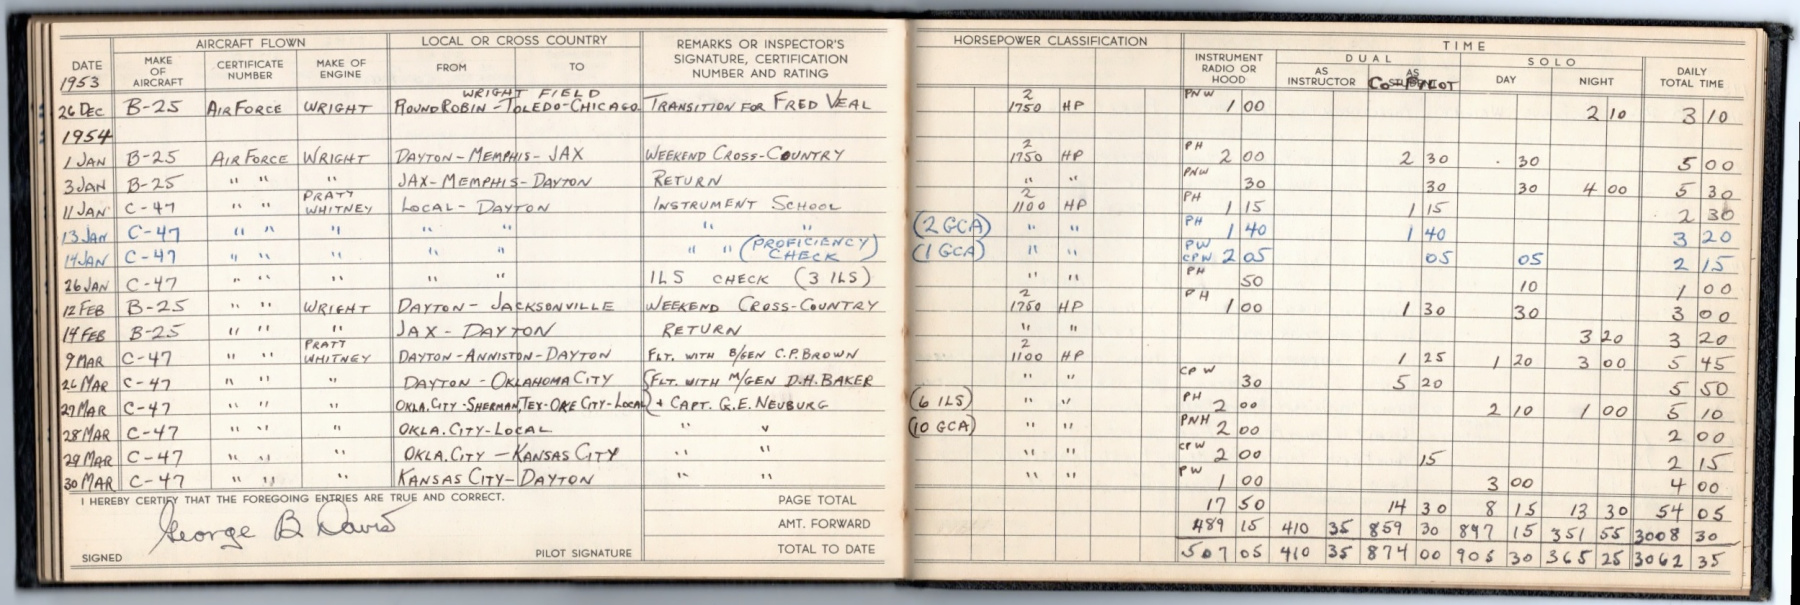 AIRCRAFT FLOWN LOCAL OR CROSS COUNTRY REMARKS OR INSPECTOR'S SIGNATURE, CERTIFICATION NUMBER AND RATING HORSEPOWER CLASSIFICATION TIME
DATE MAKE OF AIRCRAFT CERTIFICATE NUMBER MAKE OF ENGINE FROM TO INSTRUMENT RADIO OR HOOD DUAL SOLO DAILY TOTAL TIME
1953 AS INSTRUCTOR AS CO-PILOT DAY NIGHT
WRIGHT FIELD
26 DEC B-25 AIR FORCE WRIGHT ROUND ROBIN - TOLEDO-CHICAGO TRANSITION FOR FRED VEAL 2 1750 HP PNW 1 00 2 10 3 10
1954
1 JAN B-25 AIR FORCE WRIGHT DAYTON-MEMPHIS-JAX WEEKEND CROSS-COUNTRY 2 1750 HP PH 2 00 2 30 30 5 00
3 JAN B-25 " " " JAX-MEMPHIS-DAYTON RETURN " " PNW 30 30 30 4 00 5 30
11 JAN C-47 " " PRATT WHITNEY LOCAL-DAYTON INSTRUMENT SCHOOL 2 1100 HP PH 1 15 1 15 2 30
13 JAN C-47 " " " " " " " (2 GCA) " " PH 1 40 1 40 3 20
14 JAN C-47 " " " " " " " (PROFICIENCY CHECK) (1 GCA) " " PW CPW 2 05 05 05 2 15
26 JAN C-47 " " " " " ILS CHECK (3 ILS) " " PH 50 10 1 00
12 FEB B-25 " " WRIGHT DAYTON - JACKSONVILLE WEEKEND CROSS-COUNTRY 2 1750 HP PH 1 00 1 30 30 3 00
14 FEB B-25 " " " JAX - DAYTON RETURN " " 3 20 3 20
9 MAR C-47 " " PRATT WHITNEY DAYTON-ANNISTON-DAYTON FLT. WITH B/GEN C.P. BROWN 2 1100 HP 1 25 1 20 3 00 5 45
26 MAR C-47 " " " DAYTON - OKLAHOMA CITY {FLT. WITH M/GEN D.H. BAKER " " CPW 30 5 20 5 50
27 MAR C-47 " " " OKLA.CITY-SHERMAN,TEX-OKE CITY-LOCAL + CAPT. G.E. NEUBURG (6 ILS) " " PH 2 00 2 10 1 00 5 10
28 MAR C-47 " " " OKLA.CITY-LOCAL " " (10 GCA) " " PNH 2 00 2 00
29 MAR C-47 " " " OKLA.CITY - KANSAS CITY " " " " CPW 2 00 15 2 15
30 MAR C-47 " " " KANSAS CITY-DAYTON " " " " PW 1 00 3 00 4 00
I HEREBY CERTIFY THAT THE FOREGOING ENTRIES ARE TRUE AND CORRECT. PAGE TOTAL 17 50 14 30 8 15 13 30 54 05
George B Davis AMT. FORWARD 489 15 410 35 859 30 897 15 351 55 3008 30
SIGNED PILOT SIGNATURE TOTAL TO DATE 507 05 410 35 874 00 905 30 365 25 3062 35